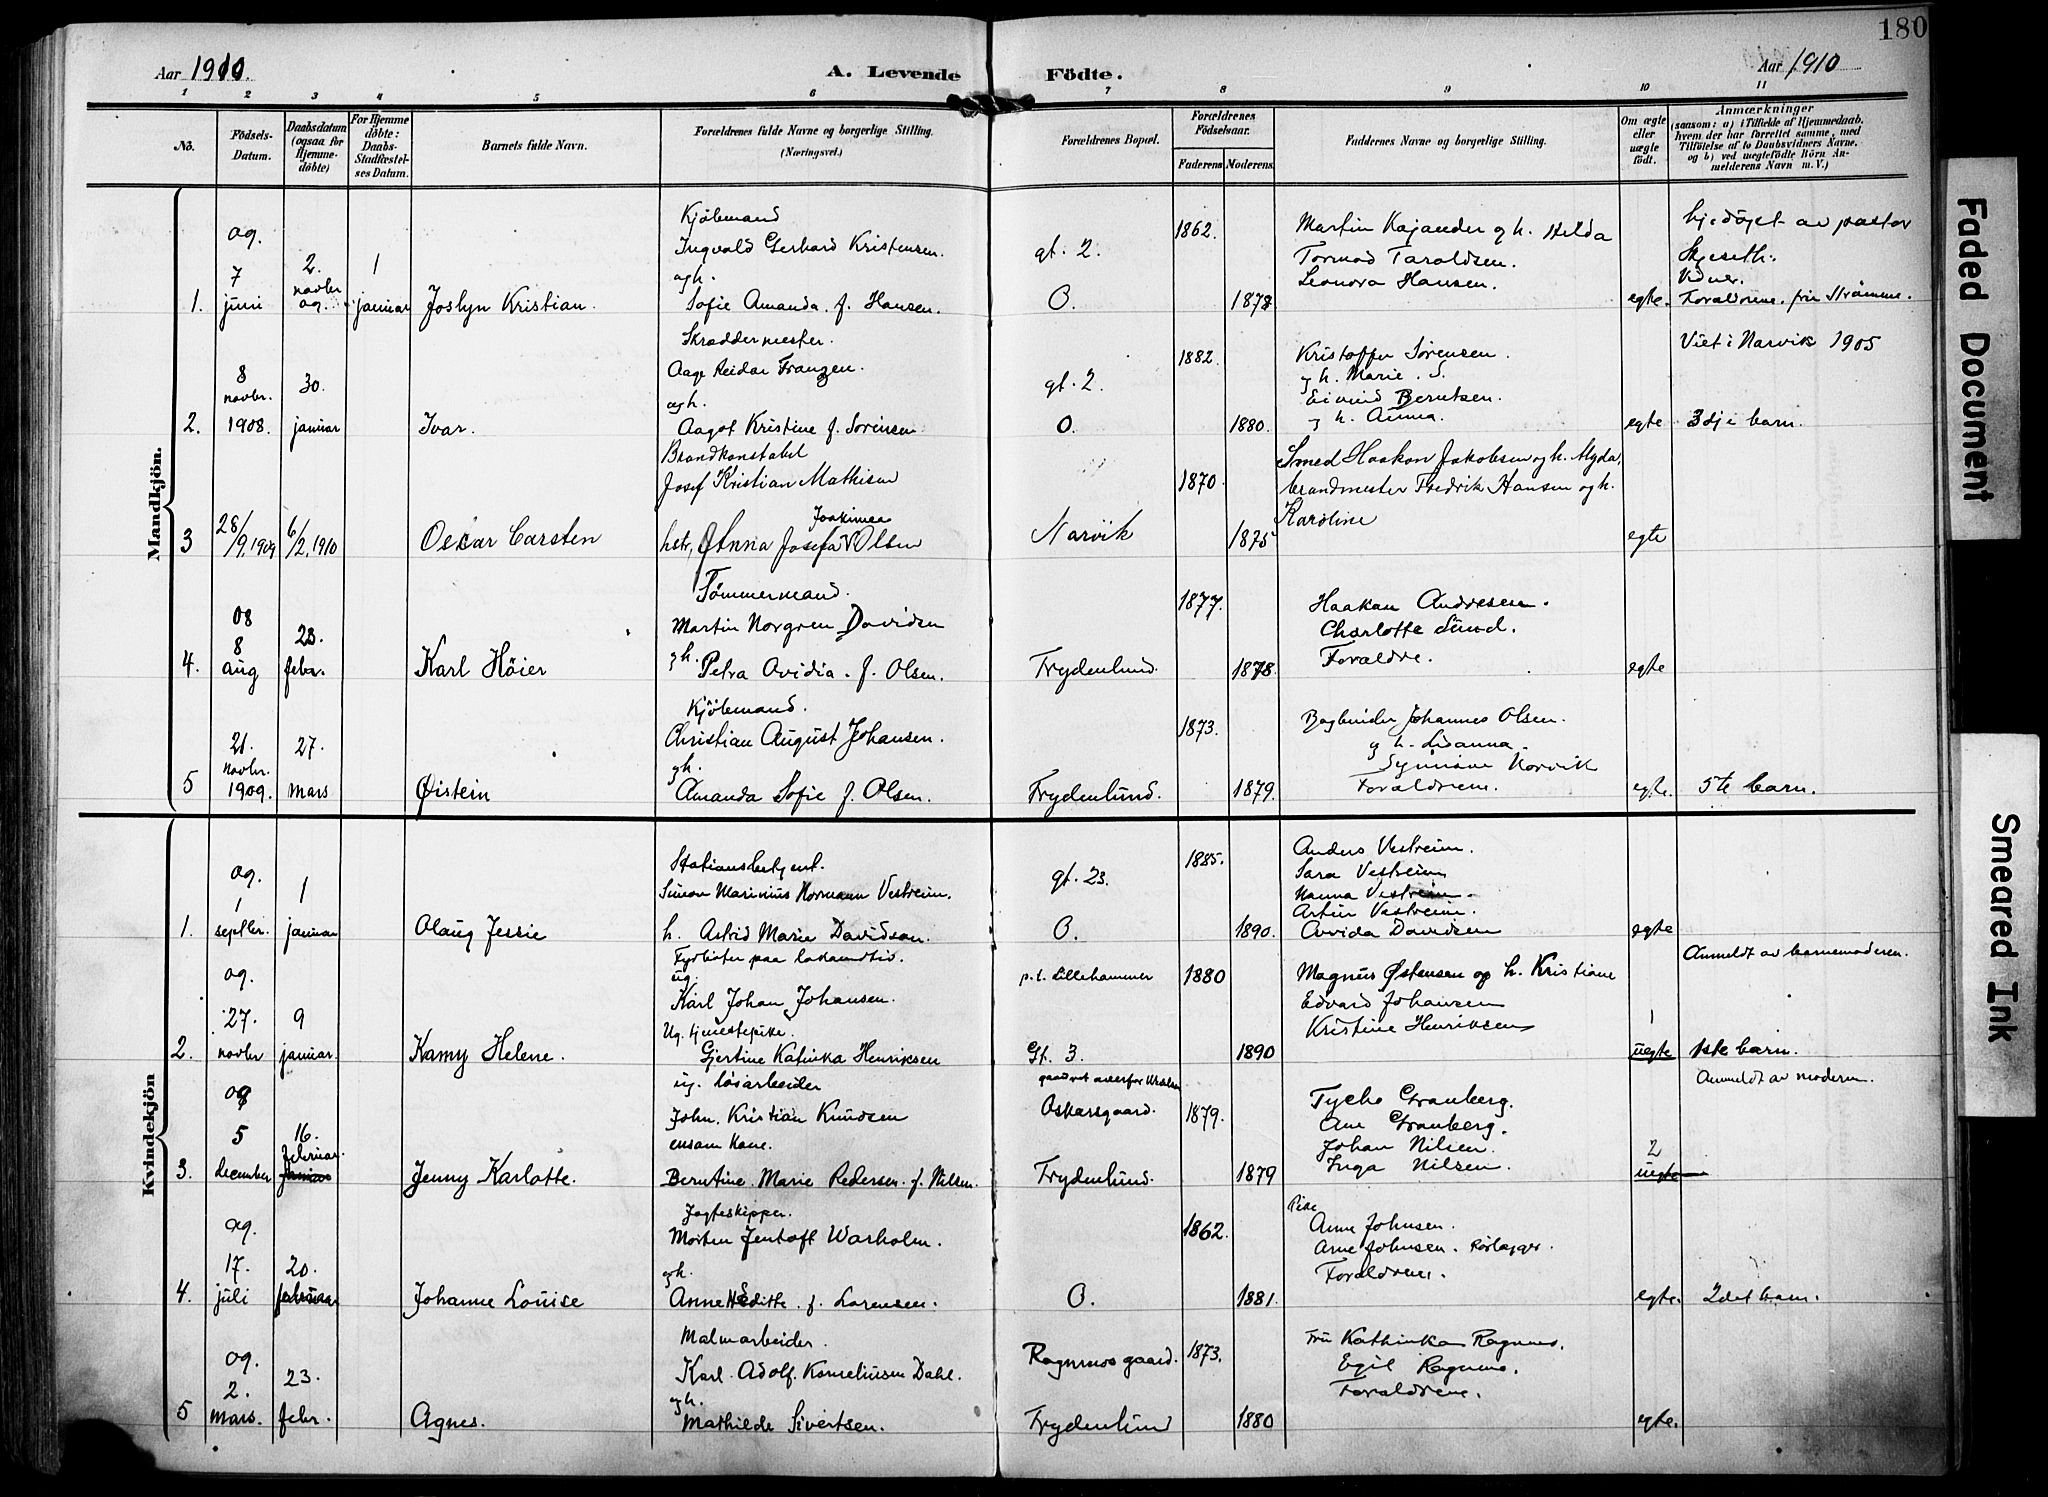 180
Aar 1910.
A. Levende Födte.
Aar 1910
1 2 3 4 5 6 7 8 9 10 11
No.
Födsels-Datum.
Daabsdatum (ogsaa for Hjemme-döbte)
For Hjemme döbte: Daabs-Stadfæstel-ses Datum.
Barnets fulde Navn.
Forældrenes fulde Navne og borgerlige Stilling.
(Næringsvei.)
Forældrenes Bopæl.
Forældrenes Födselsaar.
Faderens Moderens
Faddernes Navne og borgerlige Stilling.
Om ægte eller uægte födt.
Anmærkninger
(saasom: a) i Tilfælde af Hjemmedaab, hvem der har forrettet samme, med Tilföielse af to Daabsvidners Navne, og b) ved uegtefödte Börn An-melderens Navn m. V.)
Mandkjön.
1. 09. 7 juni
2. novbr 09.
1 januar
Joslyn Kristian.
Kjölemand
Ingvald Gerhard Kristensen.
og h.
Sofie Amanda. f. Hansen.
gt. 2.
O.
1862.
1878
Martin Kajander og h. Hilda
Tormod Taraldsen.
Leonora Hansen.
egte.
hjedöpt av pastor
Skjeseth.
Vidner.
Forældrene. frk Strömme.
2. 8 novbr. 1908.
30. januar
Ivar.
Skræddermester.
Aage Reidar Franzen.
og h.
Aagot Kristine f. Sörensen
gt. 2.
O.
1882.
1880.
Kristoffer Sörensen.
og h. Marie. S.
Eivind Berntsen.
og h. Anna.
egte
Viet i Narvik 1905
3dje barn.
3 28/9, 1909
6/2, 1910
Oscar Carsten
Brandkonstabel
Josef Kristian Mathisen
hstr, Anna Josefa Joakimea Olsen
Narvik
1870.
1875
Smed Haakon Jakobsen og h. Alyda,
brandmester Fredrik Hansen og h.
Karoline
egte
4. 08 8 aug
28. febr.
Karl Höier
Tömmermand.
Martin Norgren Davidsen
og h.
Petra Ovidia. f. Olsen.
Frydenlund.
1877.
1878.
Haakan Andresen.
Charlotte Lund.
Foraldre.
egte
5 21. novbr. 1909.
27. mars
Øistein
Kjölemand.
Christian August Johansen.
og h.
Amanda Sofie f. Olsen.
Frydenlund.
1873.
1879.
Bogbinder Johannes Olsen.
og h. Lisanna.
Synnöve Norvik
Foraldrene.
egte.
5te barn.
Kvindekjön
1. 09. 1 septbr.
1 januar
Olaug Jessie
Stationsbetjent.
Simon Marinius Normann Vestreim.
h. Astrid Marie Davidson.
gt. 23.
O.
1885.
1890.
Anders Vestreim.
Sara Vestreim
Hanna Vestreim.
Artur Vestreim.
Ovvida Davidsen
egte
2. 09. 27. novbr
9 januar.
Kamy Helene.
Fyrböter paa lokomotiv.
ug.
Karl Johan Johansen.
Ug. tjenestepike.
Gjertine Katinka Henriksen
p.t. Lillehammer
Gt. 3.
1880
1890
Magnus Östensen og h. Kristiane
Edvard Johansen
Kristine Henriksen
1
uegte
Anmeldt av barnemoderen.
1ste barn.
3. 09 5 december
16. februar.
Jenny Karlotte.
ug. lösarbeider
John. Kristian Knudsen
ensam kone.
Berntine. Marie Pedersen. f. Nilsen.
Oskarsgaard.
Frydenlund.
1879.
1879
Tycho Granberg.
Ane Granberg.
Johan Nilsen.
Inga Nilsen.
2
uegte
Anmeldt av moderen.
4. 09. 17. juli
20. februar
Johanne Louise
Jagteskipper.
Morten Jentoft Warholm.
og h.
Anne Heditte. f. Lorensen.
O.
1862.
1881.
Pike
Anna Johnsen.
Arne Johnsen. Rörlægger.
Foraldrene.
egte.
2det barn.
5 09. 2. mars.
23. febr.
Agnes.
Malmarbeider.
Karl. Adolf. Korneliusen Dahl.
og h.
Mathilde Sivertsen.
Ragnnes gaard.
Frydenlund
1873.
1880
Fru Kathinka Ragnnes.
Egil Ragnnes.
Foraldrene.
egte.
Faded Document
Smeared Ink